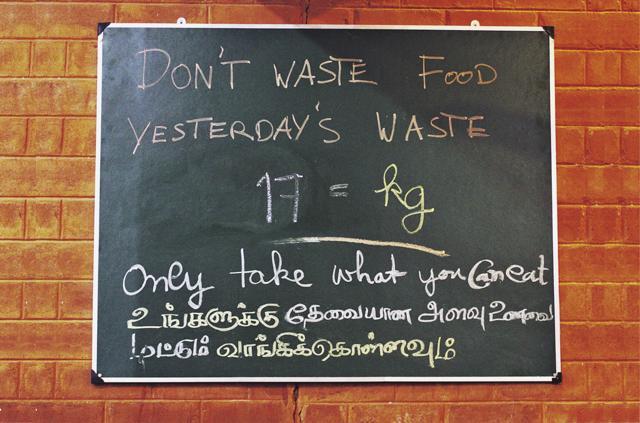 DON'T WASTE FOOD
YESTERDAY'S WASTE
17 = kg
Only take what you Can eat
உங்களுக்கு தேவையான அளவு உணவை
மட்டும் வாங்கிக்கொள்ளவும்